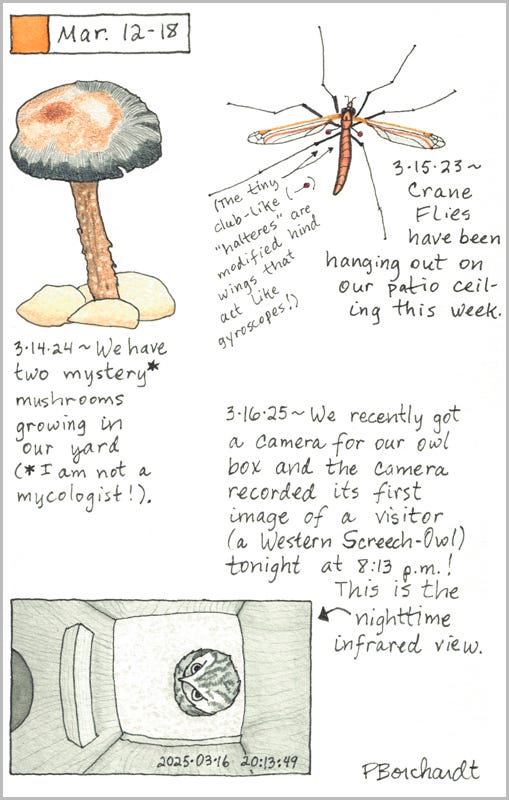 Mar. 12-18
(The tiny
club-like ( )
"halteres" are
modified hind
wings that
act like
gyroscopes!)
3·15·23~
Crane
Flies
have been
hanging out on
our patio ceil-
ing this week.
3·14·24~We have
two mystery*
mushrooms
growing in
our yard
(*I am not a
mycologist!).
3·16·25~We recently got
a camera for our owl
box and the camera
recorded its first
image of a visitor
(a Western Screech-Owl)
tonight at 8:13 p.m.!
This is the
nighttime
infrared view.
2025·03·16 20:13:49
PBorchardt